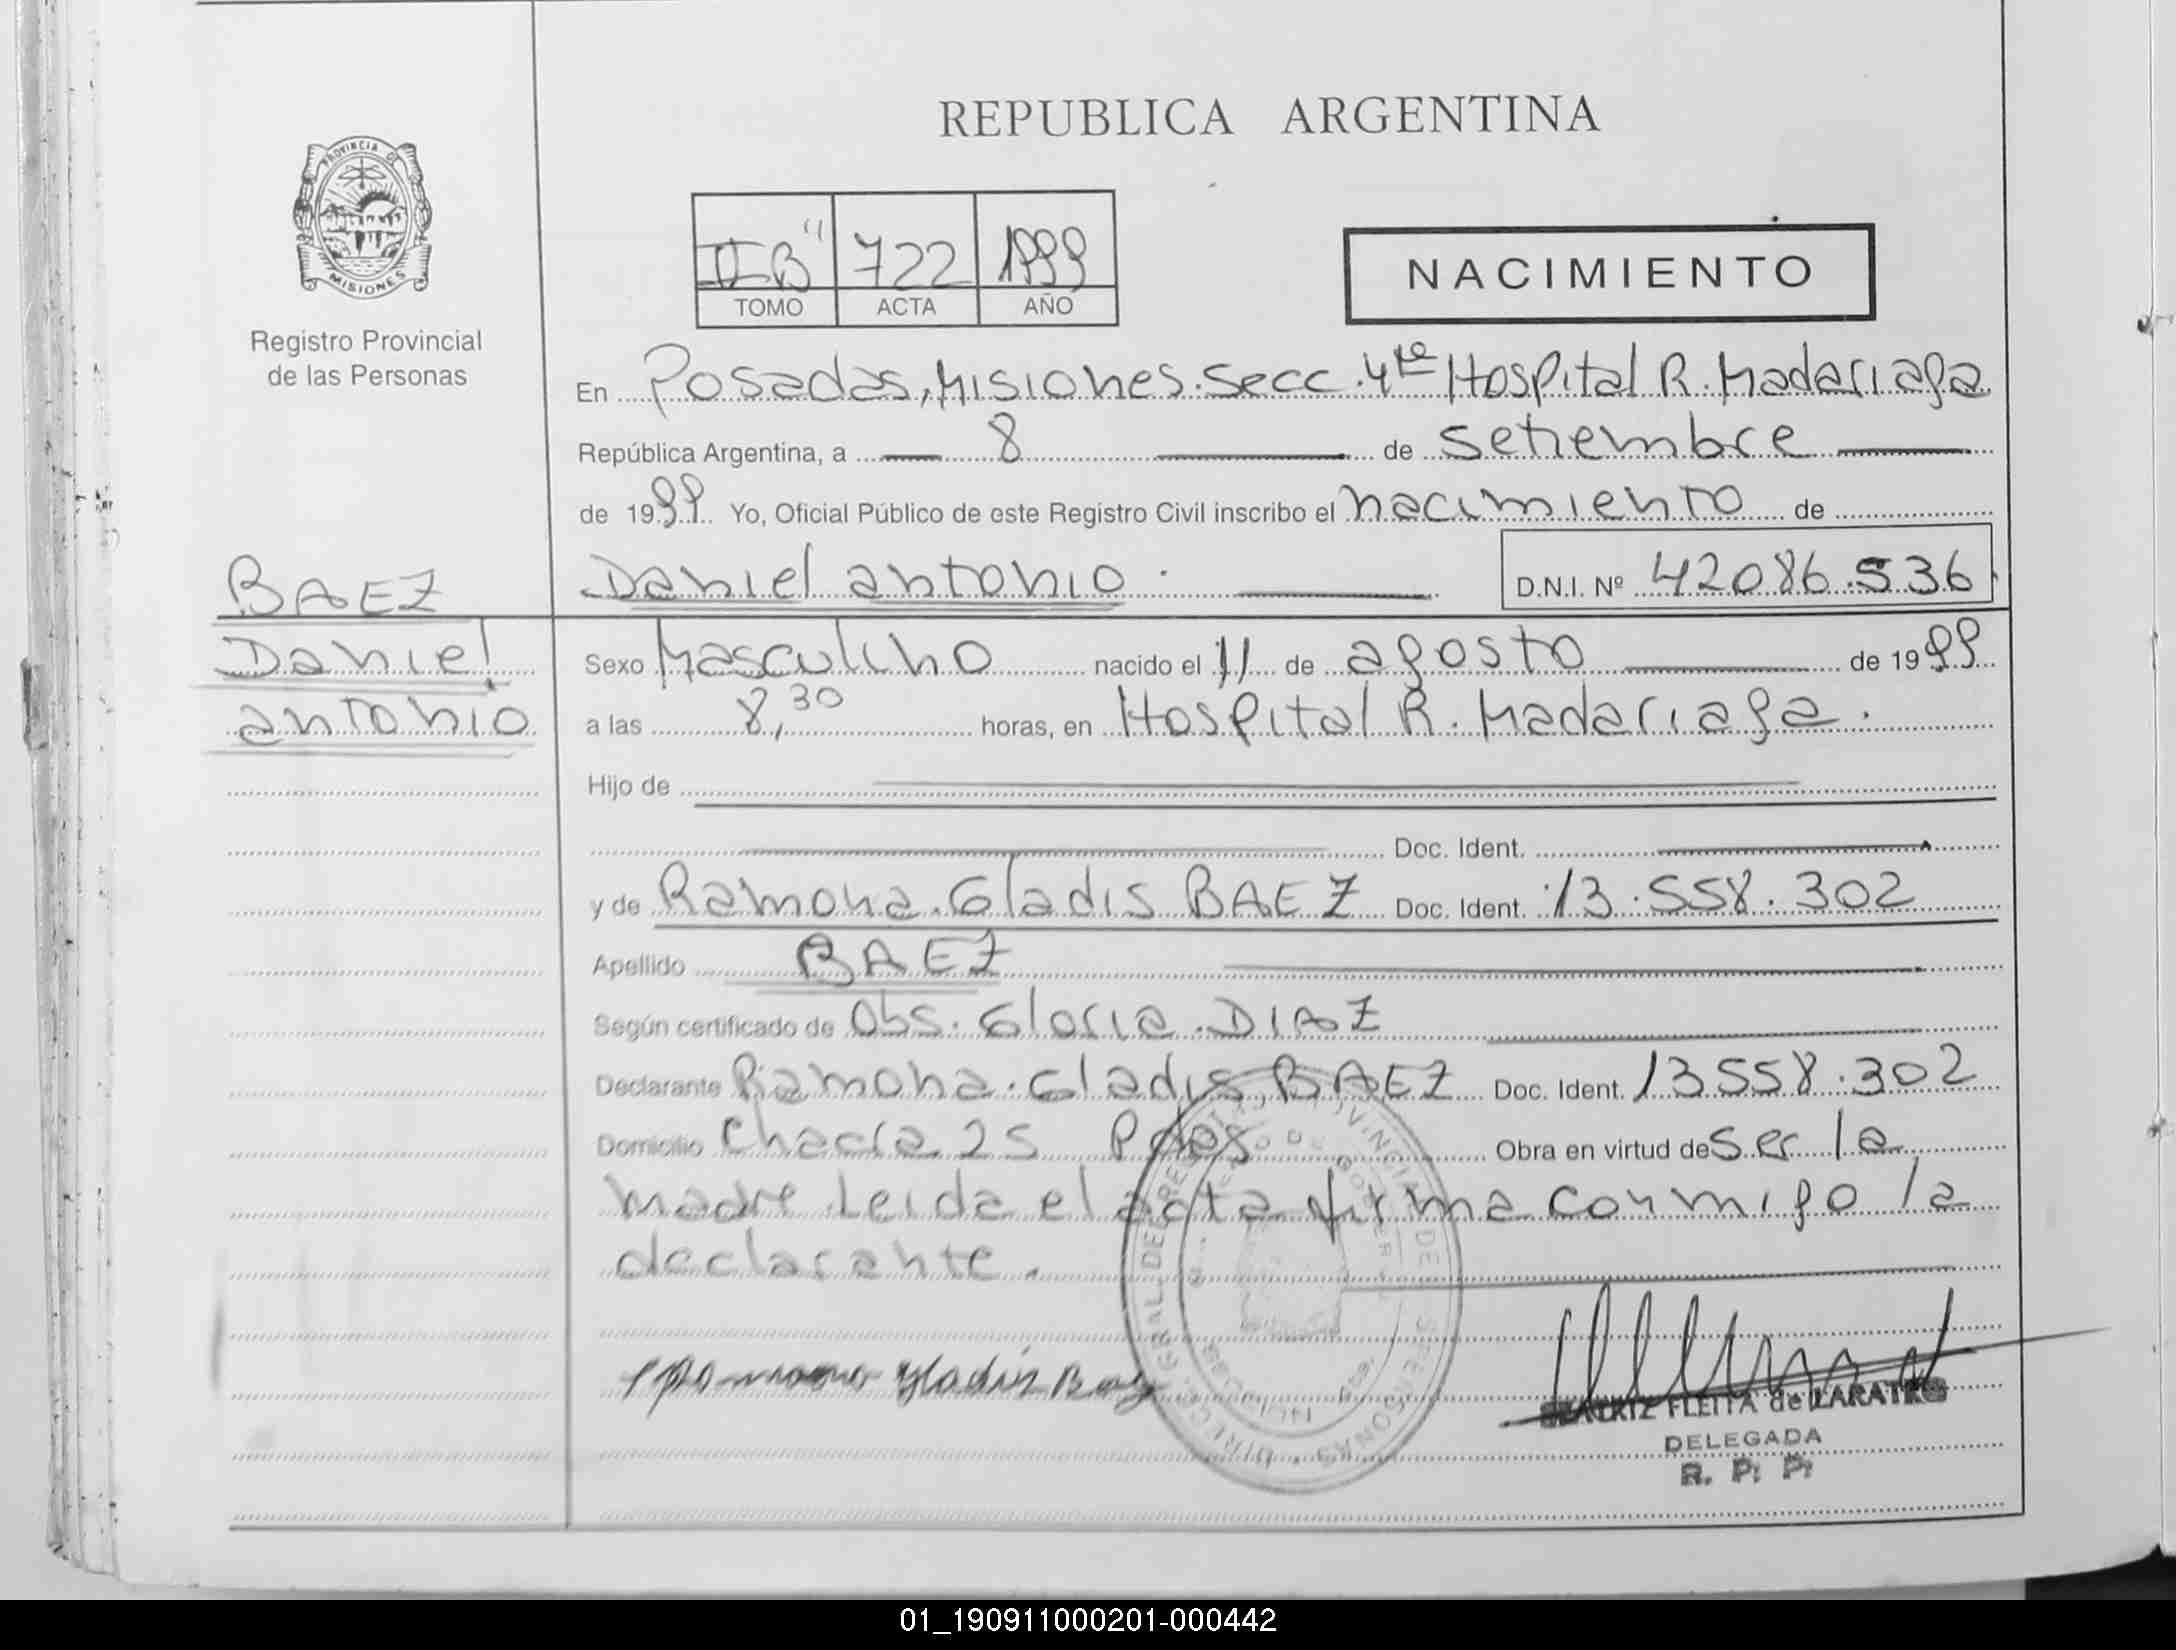 REPUBLICA ARGENTINA
PROVINCIA DE
MISIONES
Registro Provincial
de las Personas
II B" 722 1999
TOMO ACTA AÑO
NACIMIENTO
En Posadas, Misiones. Secc. 4ta Hospital R. Madariaga
República Argentina, a 8 de setiembre
de 1999 Yo, Oficial Público de este Registro Civil inscribo el nacimiento de
BAEZ
Daniel antonio. D.N.I. Nº 42086.536
Daniel
antonio
Sexo Masculino nacido el 11 de agosto de 1999
a las 8,30 horas, en Hospital R. Madariaga.
Hijo de
Doc. Ident.
y de Ramona Gladis BAEZ Doc. Ident. 13.558.302
Apellido BAEZ
Según certificado de Obs. Gloria DIAZ
Declarante Ramona Gladis BAEZ Doc. Ident. 13558.302
Domicilio Chacra 25 Pdas Obra en virtud de ser la
madre Leida el acta firma conmigo la
declarante.
Ramona Gladis Baez
BEATRIZ FLEITA de
DELEGADA
R. P. P.
01_190911000201-000442